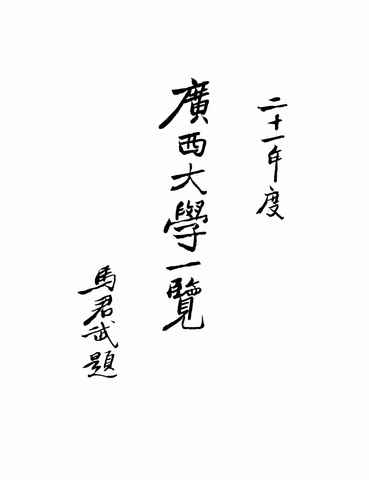 二十一年度
廣西大學一覽
馬君武題